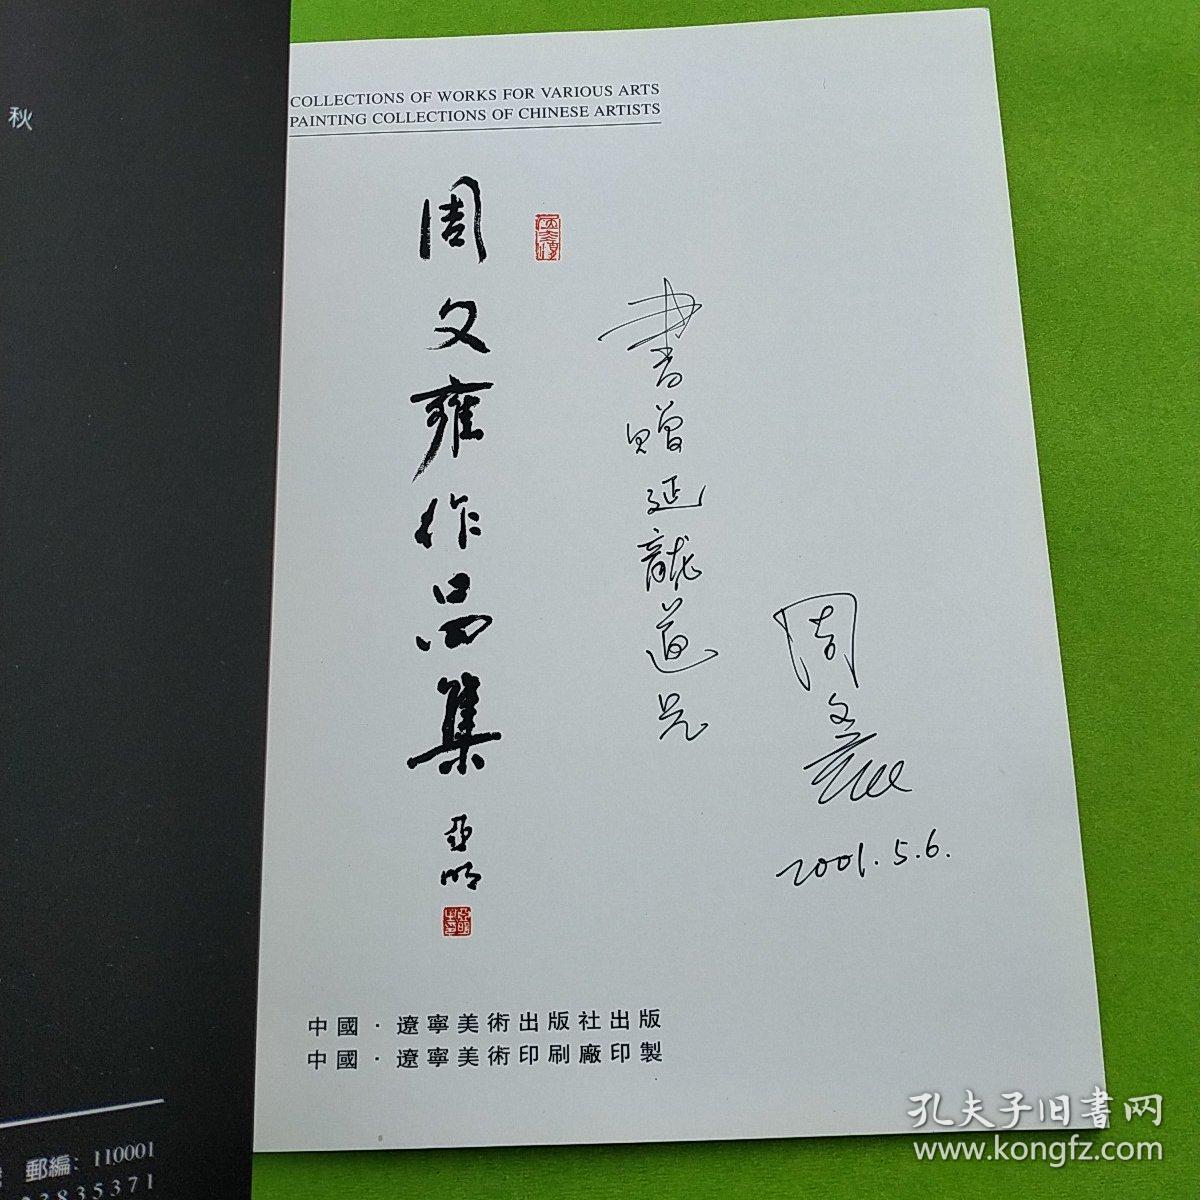 秋
COLLECTIONS OF WORKS FOR VARIOUS ARTS
PAINTING COLLECTIONS OF CHINESE ARTISTS
周文雍作品集
亞明
書贈延龍道兄
周文雍
2001.5.6.
中國·遼寧美術出版社出版
中國·遼寧美術印刷廠印製
郵編: 110001
3835371
孔夫子旧書网
www.kongfz.com